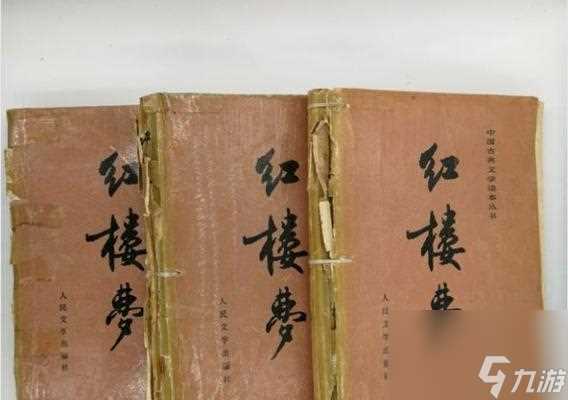 红楼梦
人民文学出版社
红楼梦
人民文学出版社
中国古典文学读本丛书
红楼梦
人民文学出版社
九游